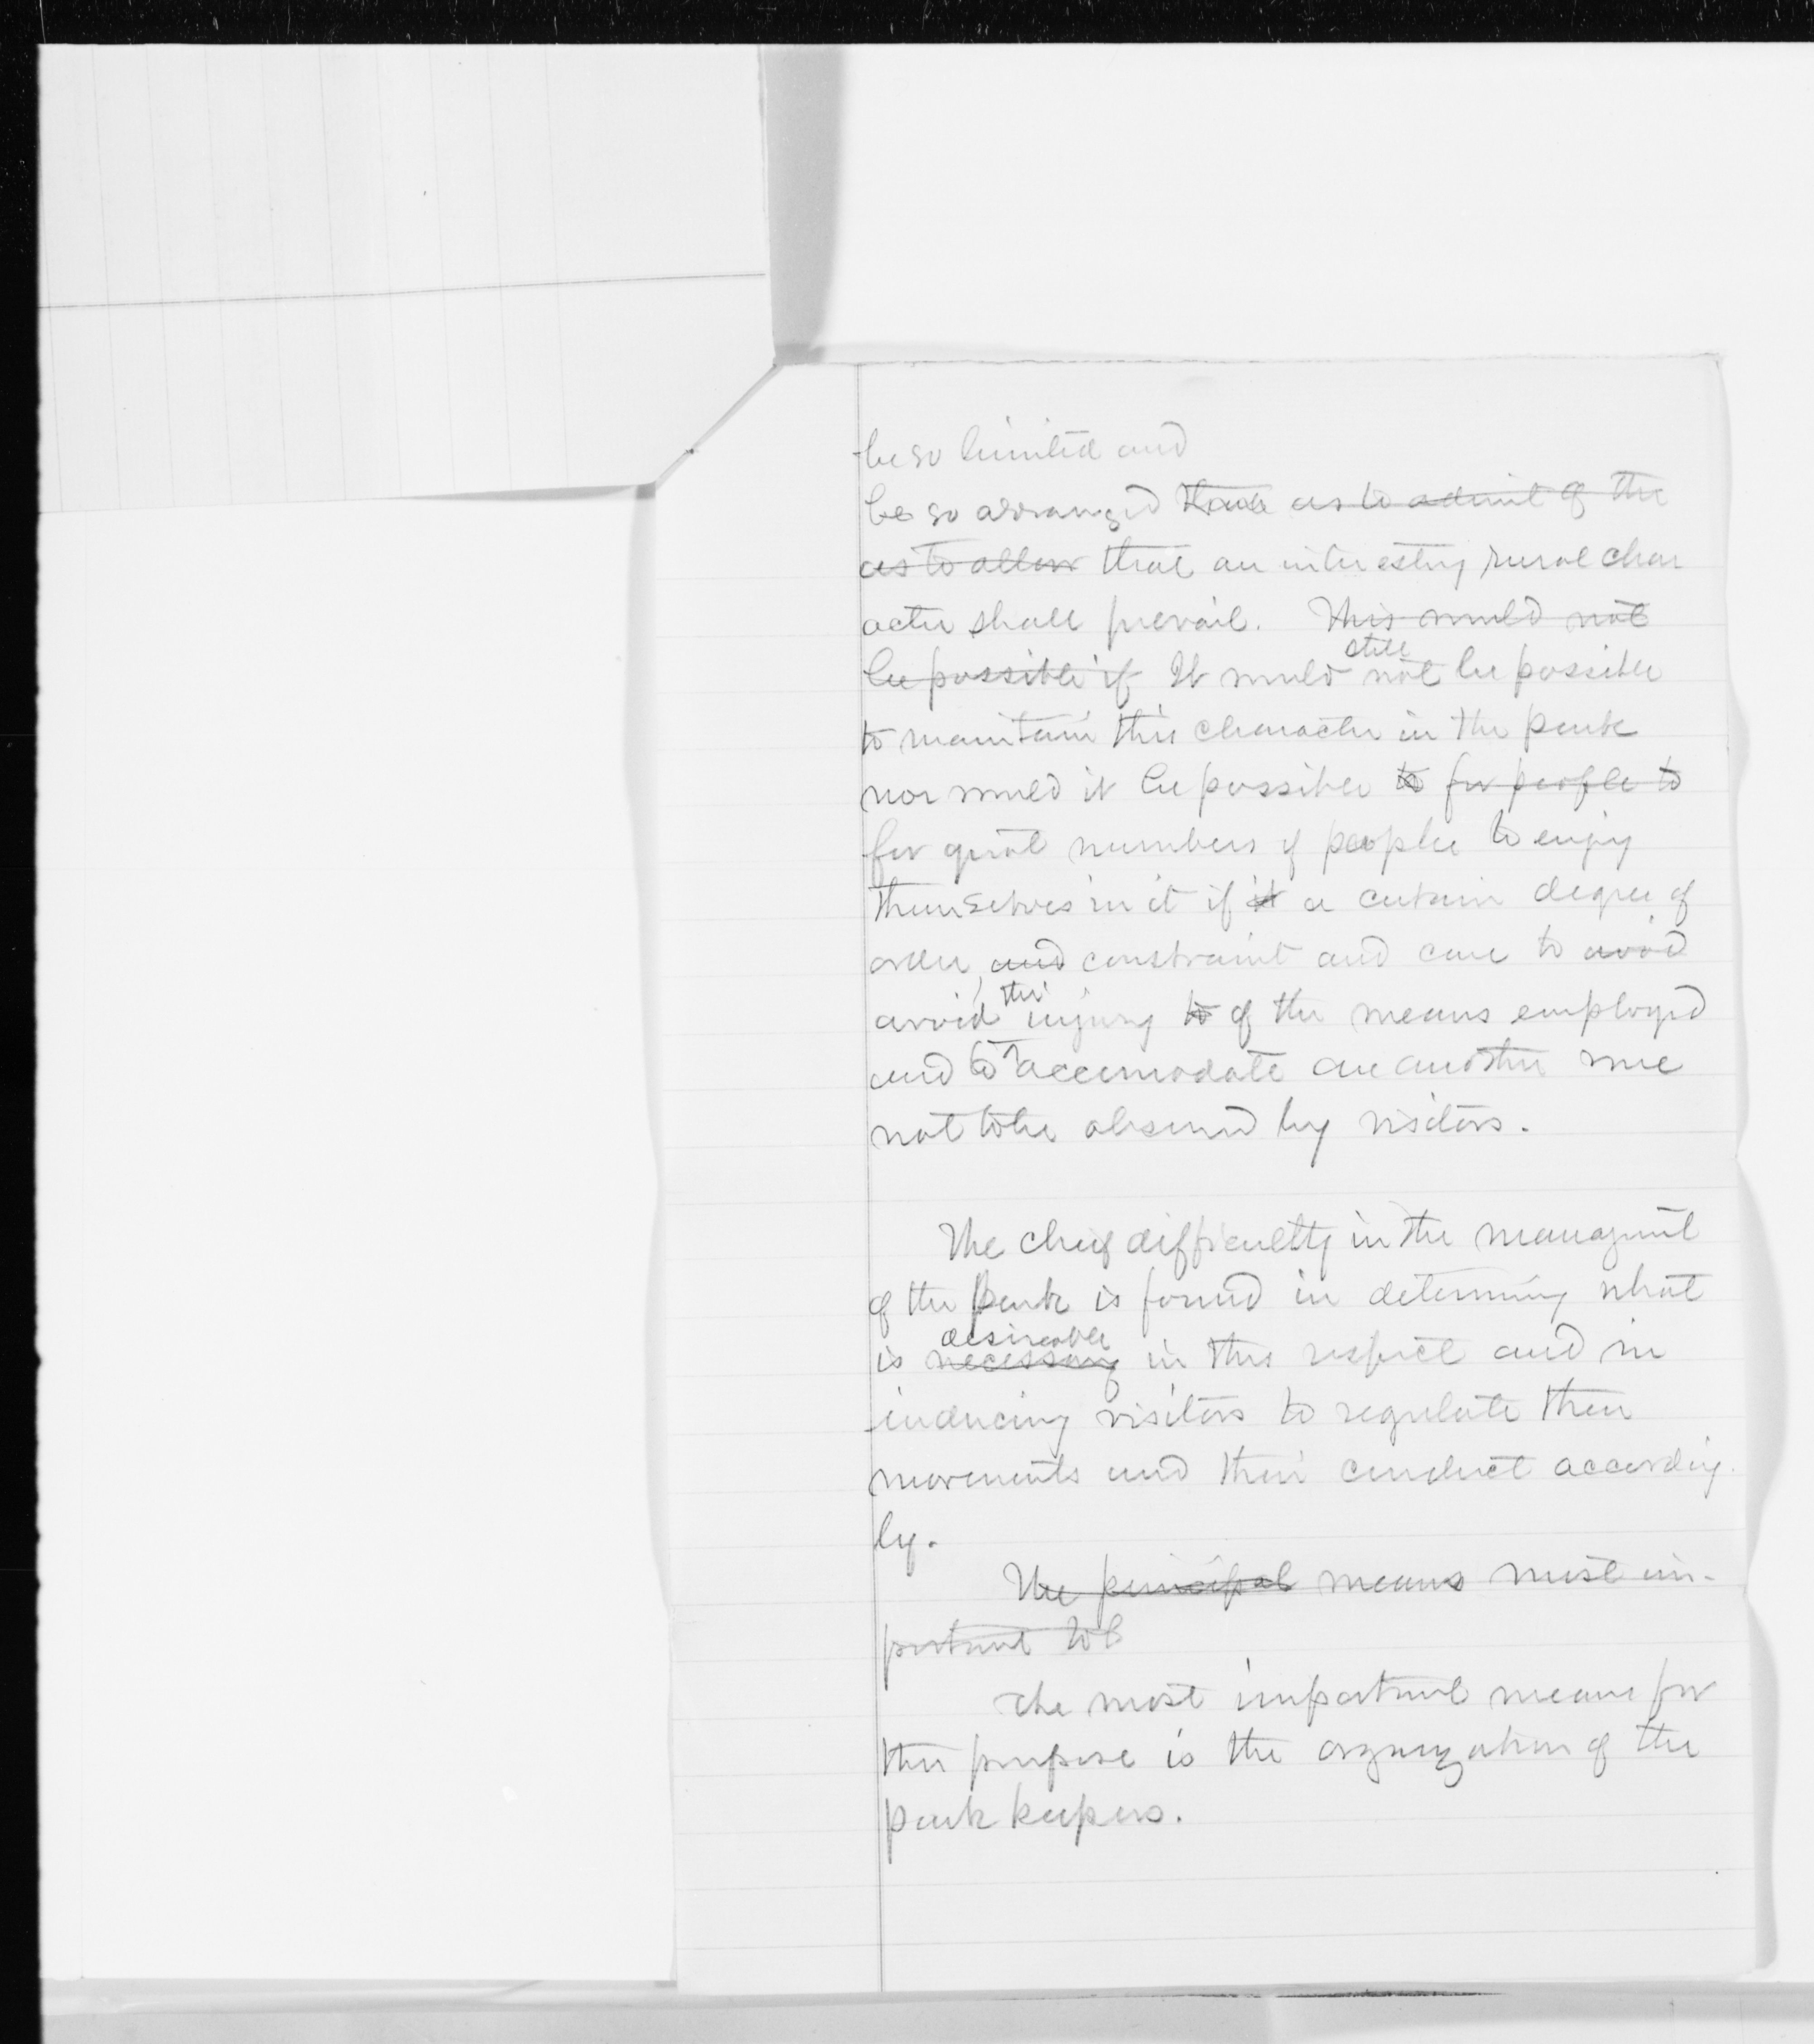 be so limited and
be so arranged that as to admit of the
as to allow that an interesting rural char
acter shall prevail. This would not
be possible if It would still not be possible
to maintain this character in the park
nor would it be possible to for people to
for great numbers of people to enjoy
themselves in it if it a certain degree of
order, and constraint and care to avoid
avoid the injury to of the means employed
and to accomodate one another were
not to be observed by visitors.
The chief difficulty in the managment
of the Park is found in determining what
is necessary desireable in this respect and in
inducing visitors to regulate their
movements and their conduct according
ly.
The principal means most im-
portant to
The most important means for
this purpose is the organization of the
park keepers.